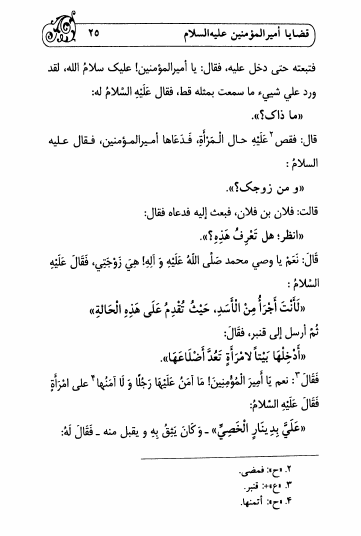 قضايا أميرالمؤمنين عليه‌السلام
٢٥
فتبعته حتى دخل عليه، فقال: يا أميرالمؤمنين! عليک سلامُ الله، لقد
ورد علي شييء ما سمعت بمثله قط، فقال عَلَيْهِ السَّلامُ له:
«ما ذاک؟».
قال: فقص ٢ عَلَيْهِ حال الْمَرْأَةِ، فَدَعَاها أميرالمؤمنين، فـقال عليه
السلامُ:
«و من زوجک؟».
قالت: فلان بن فلان، فبعث إليه فدعاه فقال:
«انظر؛ هل تَعْرِفُ هَذِهِ؟».
قَالَ: نَعَمْ يا وصي محمد صَلَّى اللهُ عَلَيْهِ وَ آلِهِ! هِيَ زَوْجَتِي، فَقَالَ عَلَيْهِ
السَّلامُ:
«لَأَنْتَ أَجْرَأُ مِنَ الْأَسَدِ، حَيْثُ تُقْدِمُ عَلَى هَذِهِ الْحَالَةِ»
ثُمَّ أرسل إلى قنبر، فقَالَ:
«أَدْخِلْهَا بَيْتاً لامْرَأَةٍ تَعُدُّ أَضْلَاعَهَا».
فَقَالَ ٣: نعم يَا أَمِيرَ الْمُؤْمِنِينَ! مَا آمَنُ عَلَيْهَا رَجُلًا وَ لَا آمَنُها ٤ على امْرَأَةٍ
فَقَالَ عَلَيْهِ السَّلامُ:
«عَلَيَّ بِدِينَارٍ الْخَصِيِّ» ـ وَ كَانَ يَثِقُ بِهِ و يقبل منه ـ فَقَالَ لَهُ:
٢. «ح»: فمضى.
٣. «ع»+: قنبر.
٤. «ح»: أتمنها.